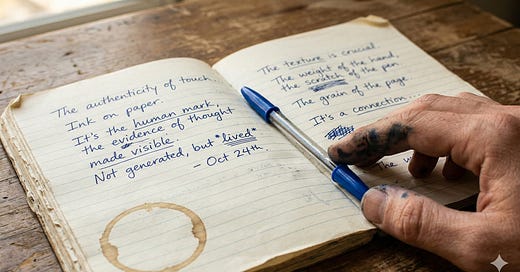 The authenticity of touch...
Ink on paper.
It's the human mark,
the evidence of thought
made visible.
Not generated, but *lived*
- Oct 24th.
The texture is crucial.
The weight of the hand
the scratch of the pen
The grain of the page.
It's a connection...
The w